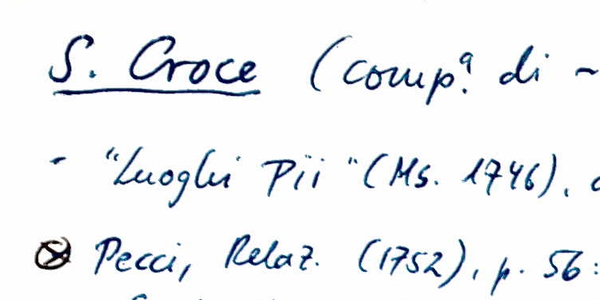 S. Croce (comp.ª di ~
- "Luoghi Pii" (Ms. 1746),
⊗ Pecci, Relaz. (1752), p. 56: